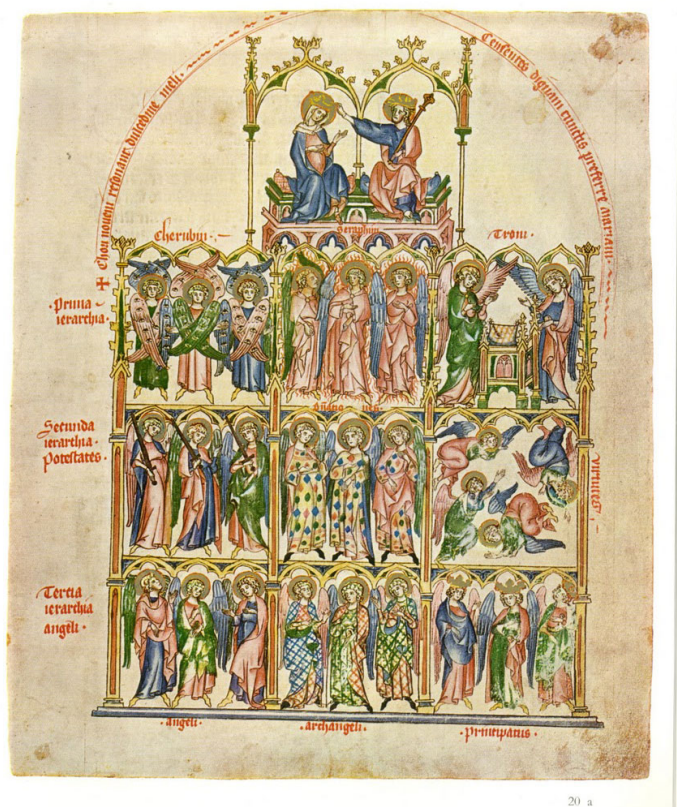 ✝ Chori novem resonant dulcedine meli.
Censentes dignam cunctis preferre mariam
Seraphin
Cherubin
Troni
Prima
ierarchia
Secunda
ierarchia
Potestates
virtutes
Tercia
ierarchia
angeli
angeli
archangeli
Principatus
20 a